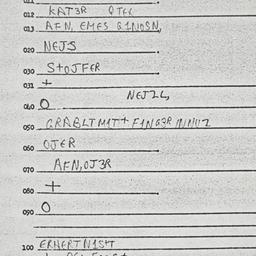 012 KAT3R QTEE
013 AFN, EMES G1NOSN,
020 NEJS
030 S+OJFER
031 +
NEJ2L,
040 O
050 GRABLTM1T+F1NG3R INNU2
060 OJER
070 AFN,OJ3R
080 +
090 O
100 ERHERTN1S+